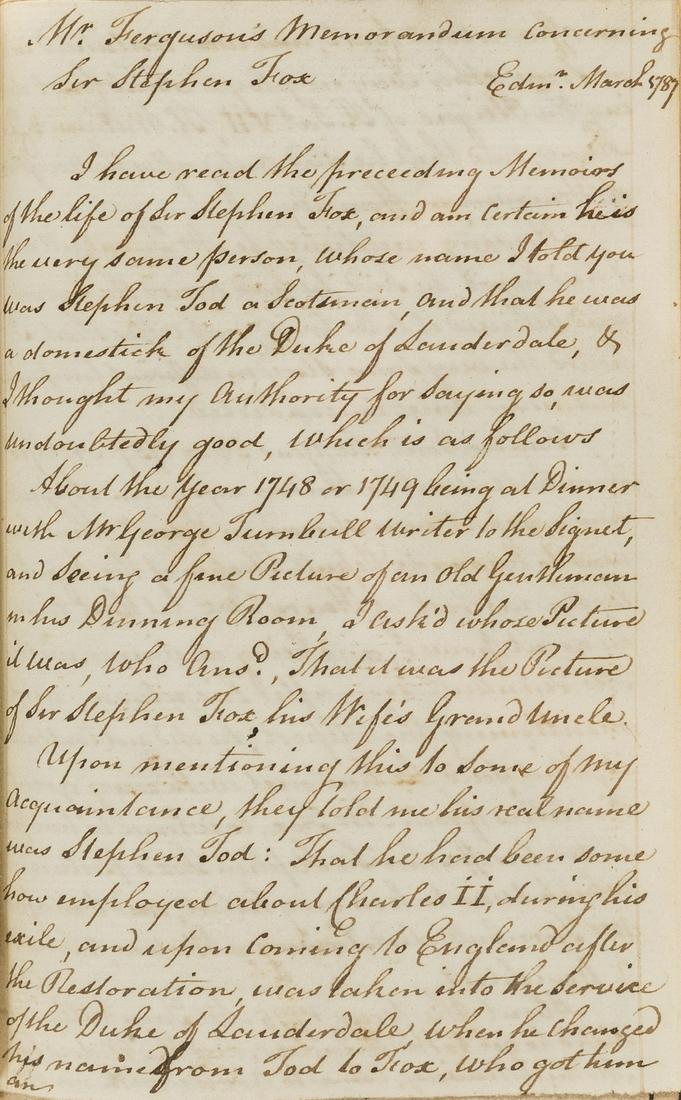 Mr. Ferguson's Memorandum Concerning
Sir Stephen Fox Edinr. March 1787
I have read the preceeding Memoirs
of the life of Sir Stephen Fox, and am Certain he is
the very same person, whose name I told you
was Stephen Tod a Scotsman, and that he was
a domestick of the Duke of Lauderdale, &
I thought my Authority for saying so, was
undoubtedly good, which is as follows
About the Year 1748 or 1749 being at Dinner
with Mr George Turnbull Writer to the Signet,
and Seeing a fine Picture of an Old Gentleman
in his Dinning Room, I ask'd whose Picture
it was, who Ansd., That it was the Picture
of Sir Stephen Fox, his Wife's Grand Uncle.
Upon mentioning this to some of my
Acquaintance, they told me his real name
was Stephen Tod: That he had been some
how employed about Charles II, during his
exile, and upon Coming to England after
the Restoration, was taken into the Service
of the Duke of Lauderdale, when he Changed
his name from Tod to Fox, who got him
an